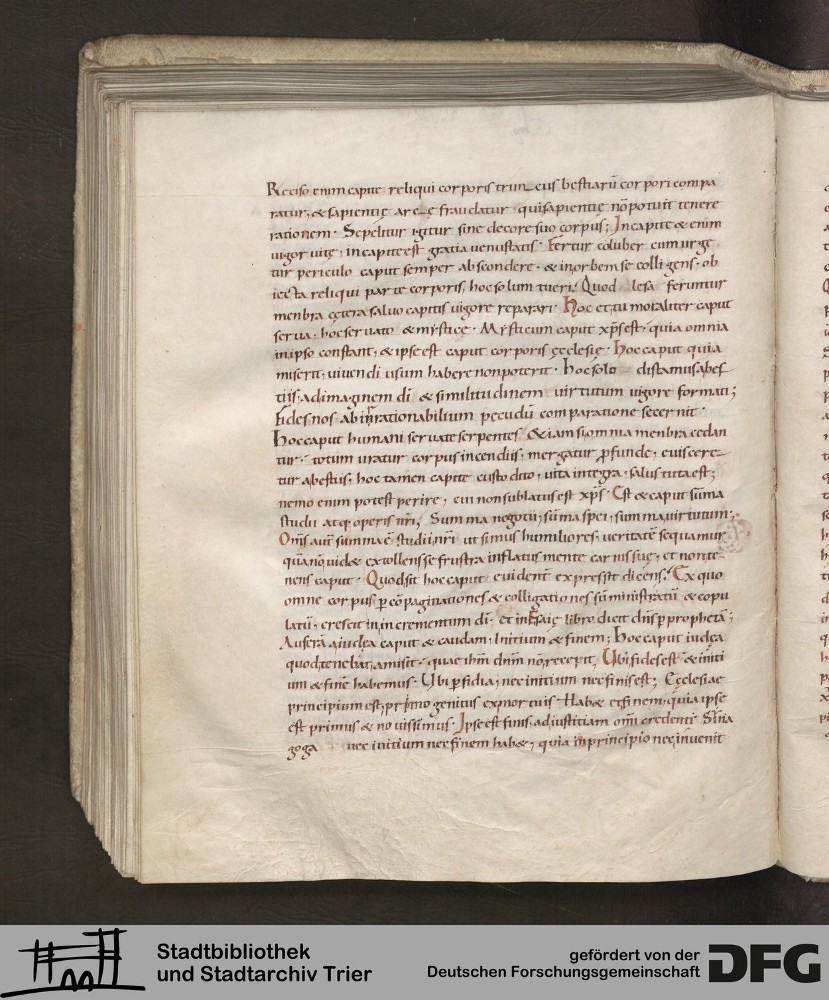 Reciso enim capite reliqui corporis truncus bestiarū corpori compa
ratur, & sapientię arce fraudatur qui sapientię nō potuit tenere
rationem. Sepelitur igitur sine decore suo corpus; In capite & enim
uigor uitę, in capite est gratia uenustatis. Fertur coluber cum urge
tur periculo caput semper abscondere. & in orbem se colligens. ob
iecta reliqui parte corporis, hoc solum tueri; Quod lesa feruntur
menbra cętera saluo capitis uigore reparari. Hoc et tu moraliter caput
serua. hoc seruato & mystice. Mysticum caput xp̄s est. quia omnia
in ipso constant, & ipse est caput corporis ęcclesię. Hoc caput quia
miserit, uiuendi usum habere non poterit. Hoc solo distamus a bes
tiis, ad imaginem dī & similitudinem uirtutum uigore formati;
Fides nos ab inrationabilium pecudū comparatione secernit.
Hoc caput humani seruate serpentes. & iam si omnia menbra cedan
tur. totum uratur corpus incendiis, mergatur ꝓfunde, euiscere
tur a bestiis, hoc tamen capite custodito, uita integra. salus tuta est;
nemo enim potest perire, cui non sublatus est xp̄s. Est & caput sūma
studii atq; operis nr̄i, Summa negotii, sūma spei, summa uirtutum;
Om̄s aut̄ summa ē studii nr̄i ut simus humiliores, ueritatē sequamur
quā nō uidet extollens se frustra inflatus mente carnis suę, et non te
nens caput. Quod sit hoc caput euident̄ expressit dicens. Ex quo
omne corpus ꝑ cōpaginationes & colligationes sū ministratū & copu
latū, crescit in incrementum dī. et in Esaię libro dicit dn̄s ꝑ prophetā;
Auferā a iudęa caput & caudam, Initium & finem; Hoc caput iudęa
quod tenebat, amisit. quae ihm̄ dn̄m nō recepit, Ubi fides est & initi
um & finē habemus. Ubi ꝑfidia, nec initium nec finis est; Ecclesiae
principium est, primogenitus ex mortuis. Habet et finem, quia ipse
est primus & nouissimus. Ipse est finis. ad iustitiam omi credenti. Sina
goga nec initium nec finem habet, quia in principio nec inuenit
Stadtbibliothek
und Stadtarchiv Trier
gefördert von der
Deutschen Forschungsgemeinschaft
DFG